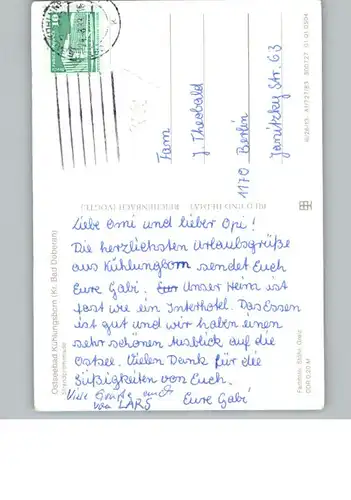 Liebe Omi und lieber Opi!
Die herzlichsten Urlaubsgrüße
aus Kühlungborn sendet Euch
Eure Gabi. Unser Heim ist
fast wie ein Interhotel. Das Essen
ist gut und wir haben einen
sehr schönen Ausblick auf die
Ostsee. Vielen Dank für die
Süßigkeiten von Euch.
Eure Gabi
Viele Grüße auch
von LARS
Fam.
J. Theobald
1170 Berlin
Janitzky Str. 63
Ostseebad Kühlungsborn (Kr. Bad Doberan)
Strandpromenade
BILD UND HEIMAT REICHENBACH (VOGTL)
DDR 0,20 M
10